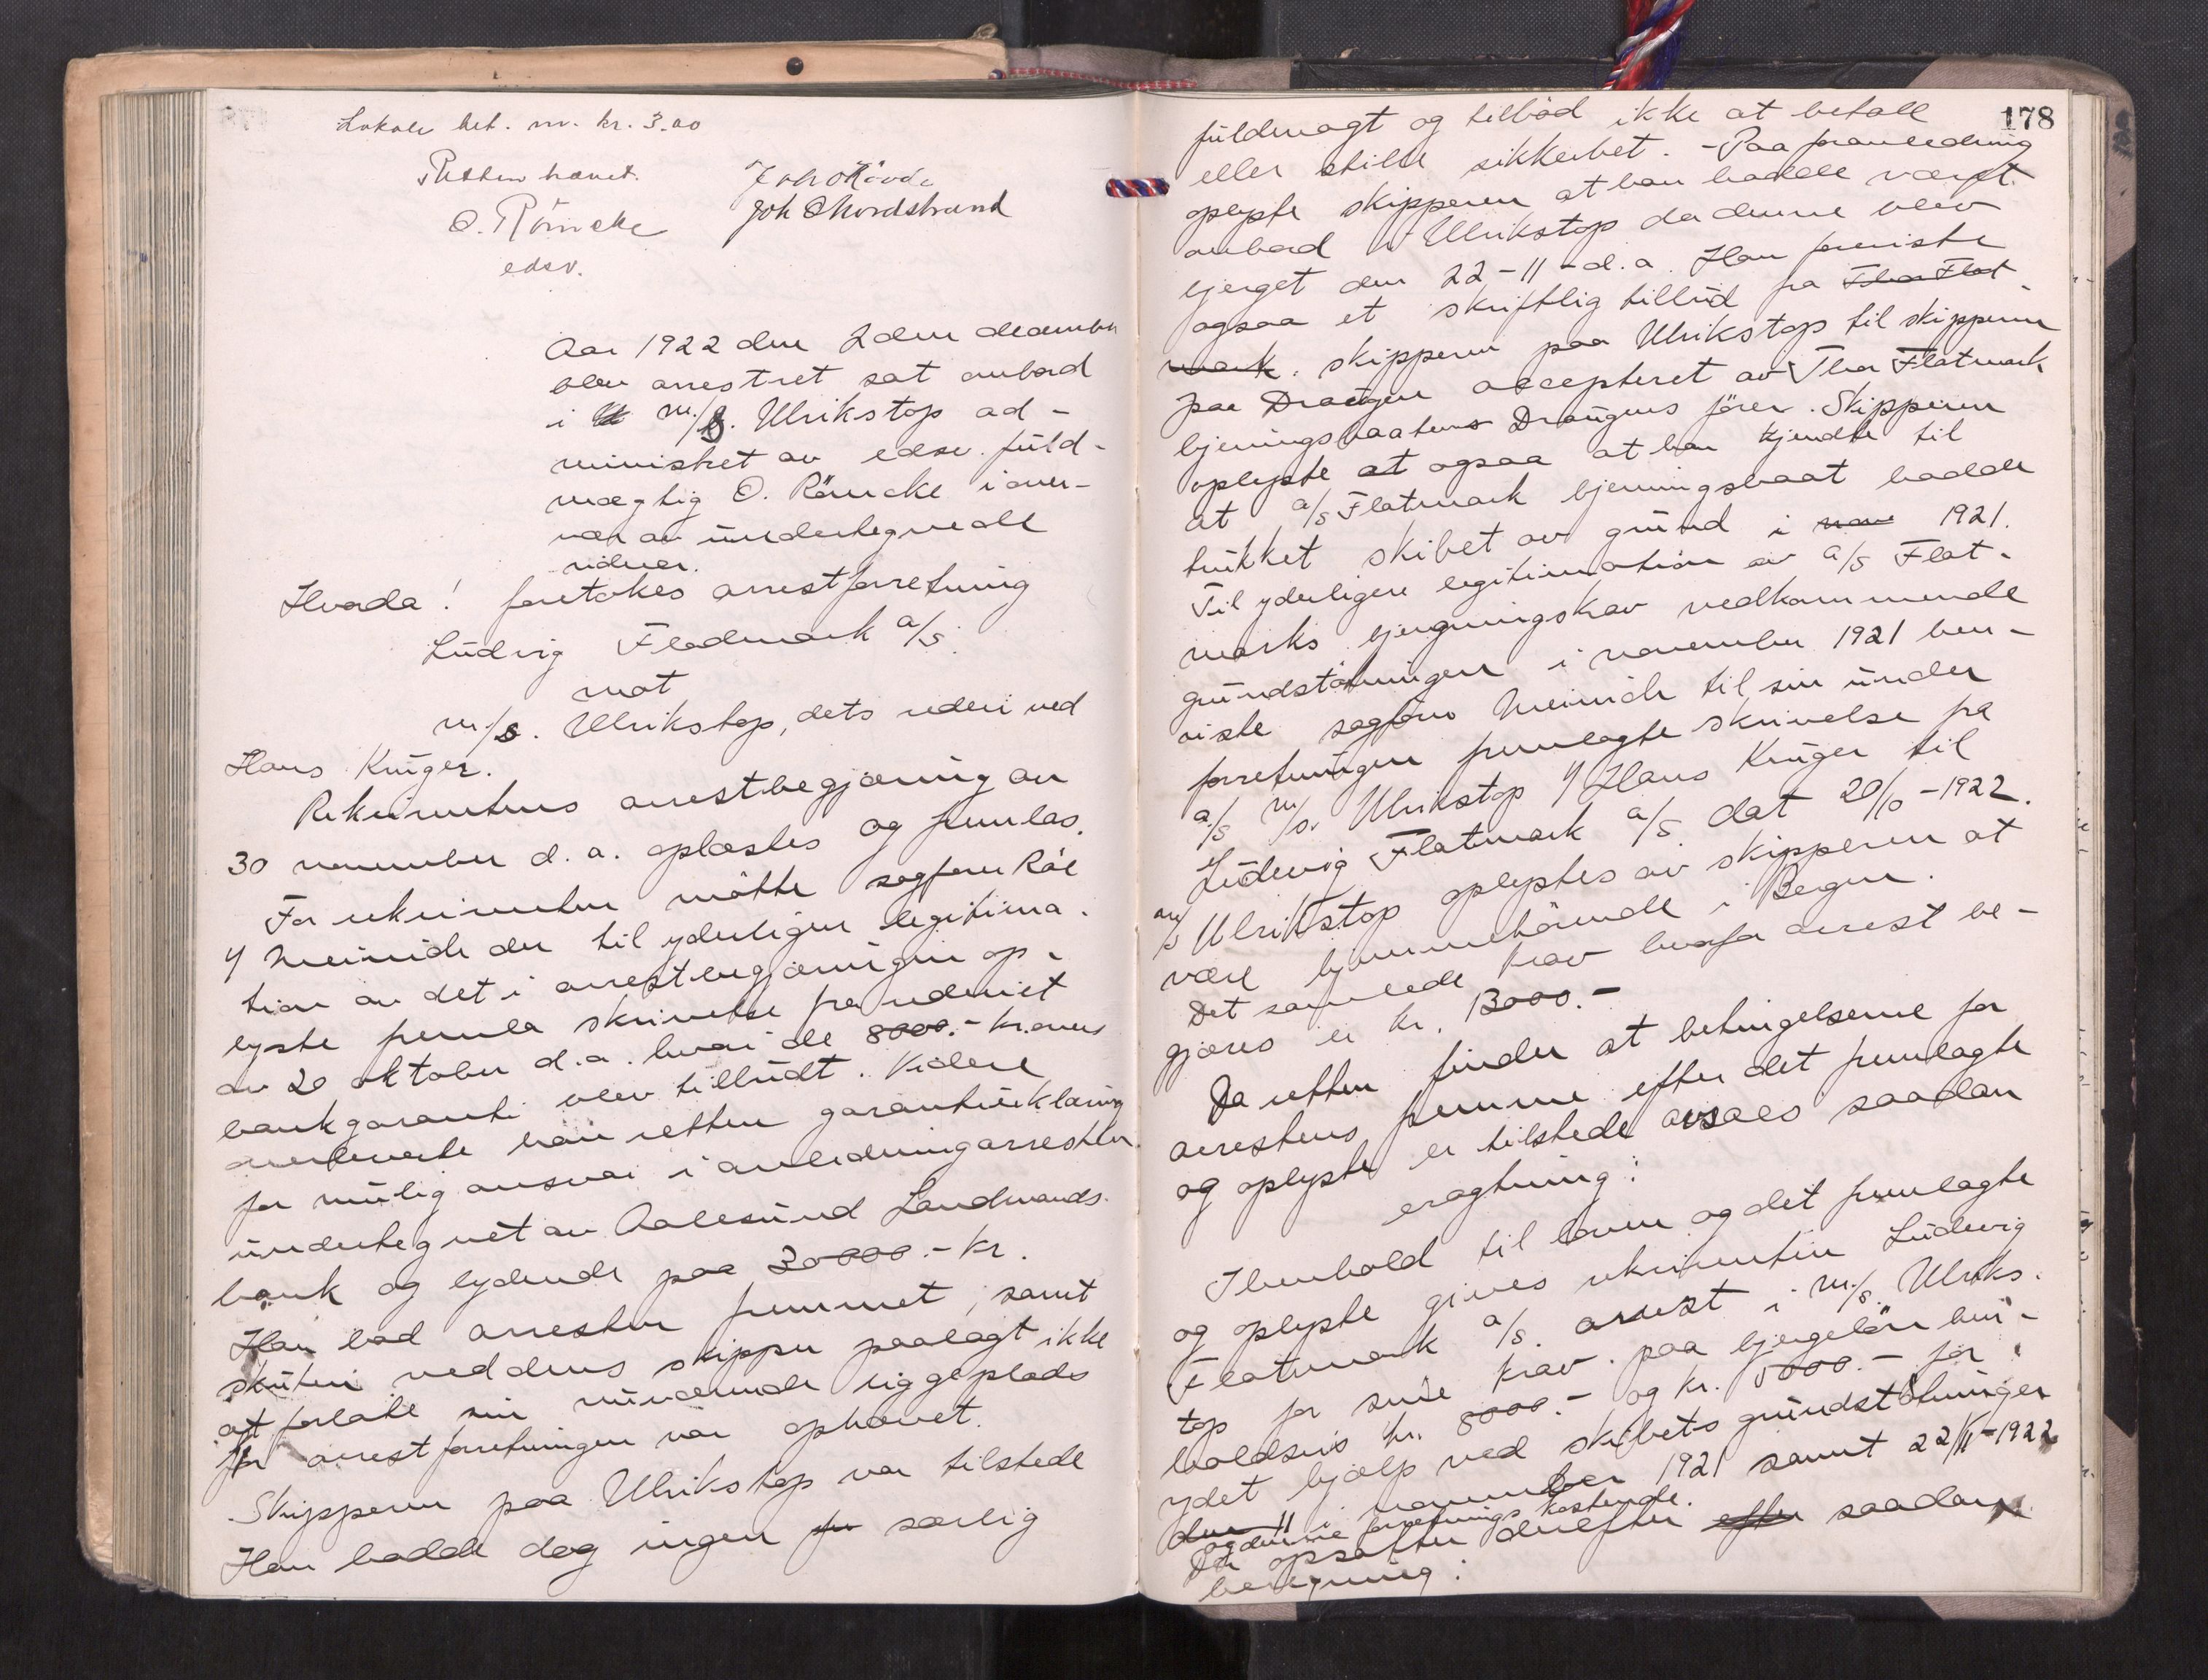 Lokale bet. m. kr. 3.00
Retten hævet.
O. Römcke
edsv.
Joh Nordstrand
Aar 1922 den 2den december
blev arrestret sat ombord
i m/s. Ulrikstop ad-
ministret av edsv. fuld-
mægtig O. Römcke i over-
vær av undertegnede
vidner.
Hvorda! foretokes arrestforretning
Ludvig Fladmark a/s.
mot
m/s. Ulrikstop, dets rederi ved
Hans Krüger.
Rekvirentens arrestbegjæring av
30 november d.a. oplæstes og fremlas.
For rekvirenten møtte sagfører Röe
f/ Meinich der til yderligere legitima-
tion av det i arrestbegjæringen op-
lyste fremla skrivelse fra rederiet
av 20 oktober d.a. hvori de 8000.- kr. mens
bankgaranti blev tilbudt. Videre
overleverte han retten garantierklæring
for mulig ansvar i anledning arresten
undertegnet av Aalesund Landmands-
bank og lydende paa 20000.- kr.
Han bad arresten fremmet, samt
skuten ved dens skipper paalagt ikke
at forlate sin nuværende liggeplads
før arrestforretningen var ophævet.
Skipperen paa Ulrikstop var tilstede
Han hadde dog ingen særlig
178
fuldmagt og tilbød ikke at betale
eller stille sikkerhet. - Paa foranledning
oplyste skipperen at han hadde været
ombord i Ulrikstop da denne blev
bjerget den 22-11-d.a. Han foreviste
ogsaa et skriftlig tilbud fra Thor Flat-
mark. skipperen paa Ulrikstop til skipperen
paa Draugen accepteret av Thor Flatmark
bjerningsbaatens Draugens fører. Skipperen
oplyste at ogsaa at han kjendte til
at a/s Flatmark bjerningsbaat hadde
trukket skibet av grund i nov 1921.
Til yderligere legitimation av a/s Flat-
marks bjergningskrav vedkommende
grundstøtningen i november 1921 hen-
viste sagfører Meinich til sin under
forretningen fremlagte skrivelse fra
a/s m/s. Ulrikstop f/ Hans Krüger til
Ludvig Flatmark a/s. dat 20/10-1922.
m/s Ulrikstop oplystes av skipperen at
være hjemmehørende i Bergen.
Det samlede krav hvorfor arrest be-
gjæres er kr. 13000.-
Da retten finder at betingelserne for
arrestens fremme efter det fremlagte
og oplyste er tilstede avsaes saadan
eragtning:
I henhold til loven og det fremlagte
og oplyste gives rekvirenten Ludvig
Flatmark a/s. arrest i m/s. Ulriks-
top for sine krav paa bjergelön hen-
holdsvis kr. 8000.- og kr. 5000.- for
ydet hjælp ved skibets grundstøtninger
den 11 i november 1921 samt 22/11-1922
og denne forretnings kostende.
Der opsattes derefter efter saadan
beregning: